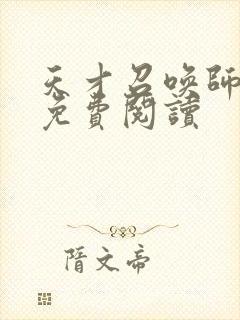 天才召喚師
免費閱讀
隋文帝